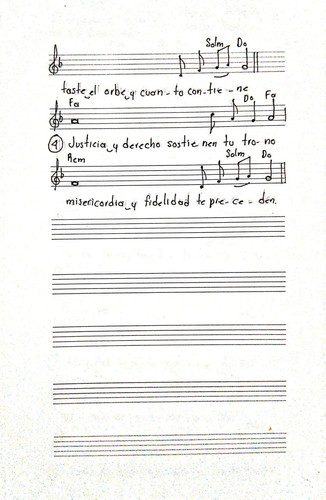 Solm Do
taste el orbe y cuan-to con-tie-ne
Fa Do Fa
④ Justicia y derecho sostie nen tu tro-no
Rem Solm Do
misericordia y fidelidad te pre-ce-den.